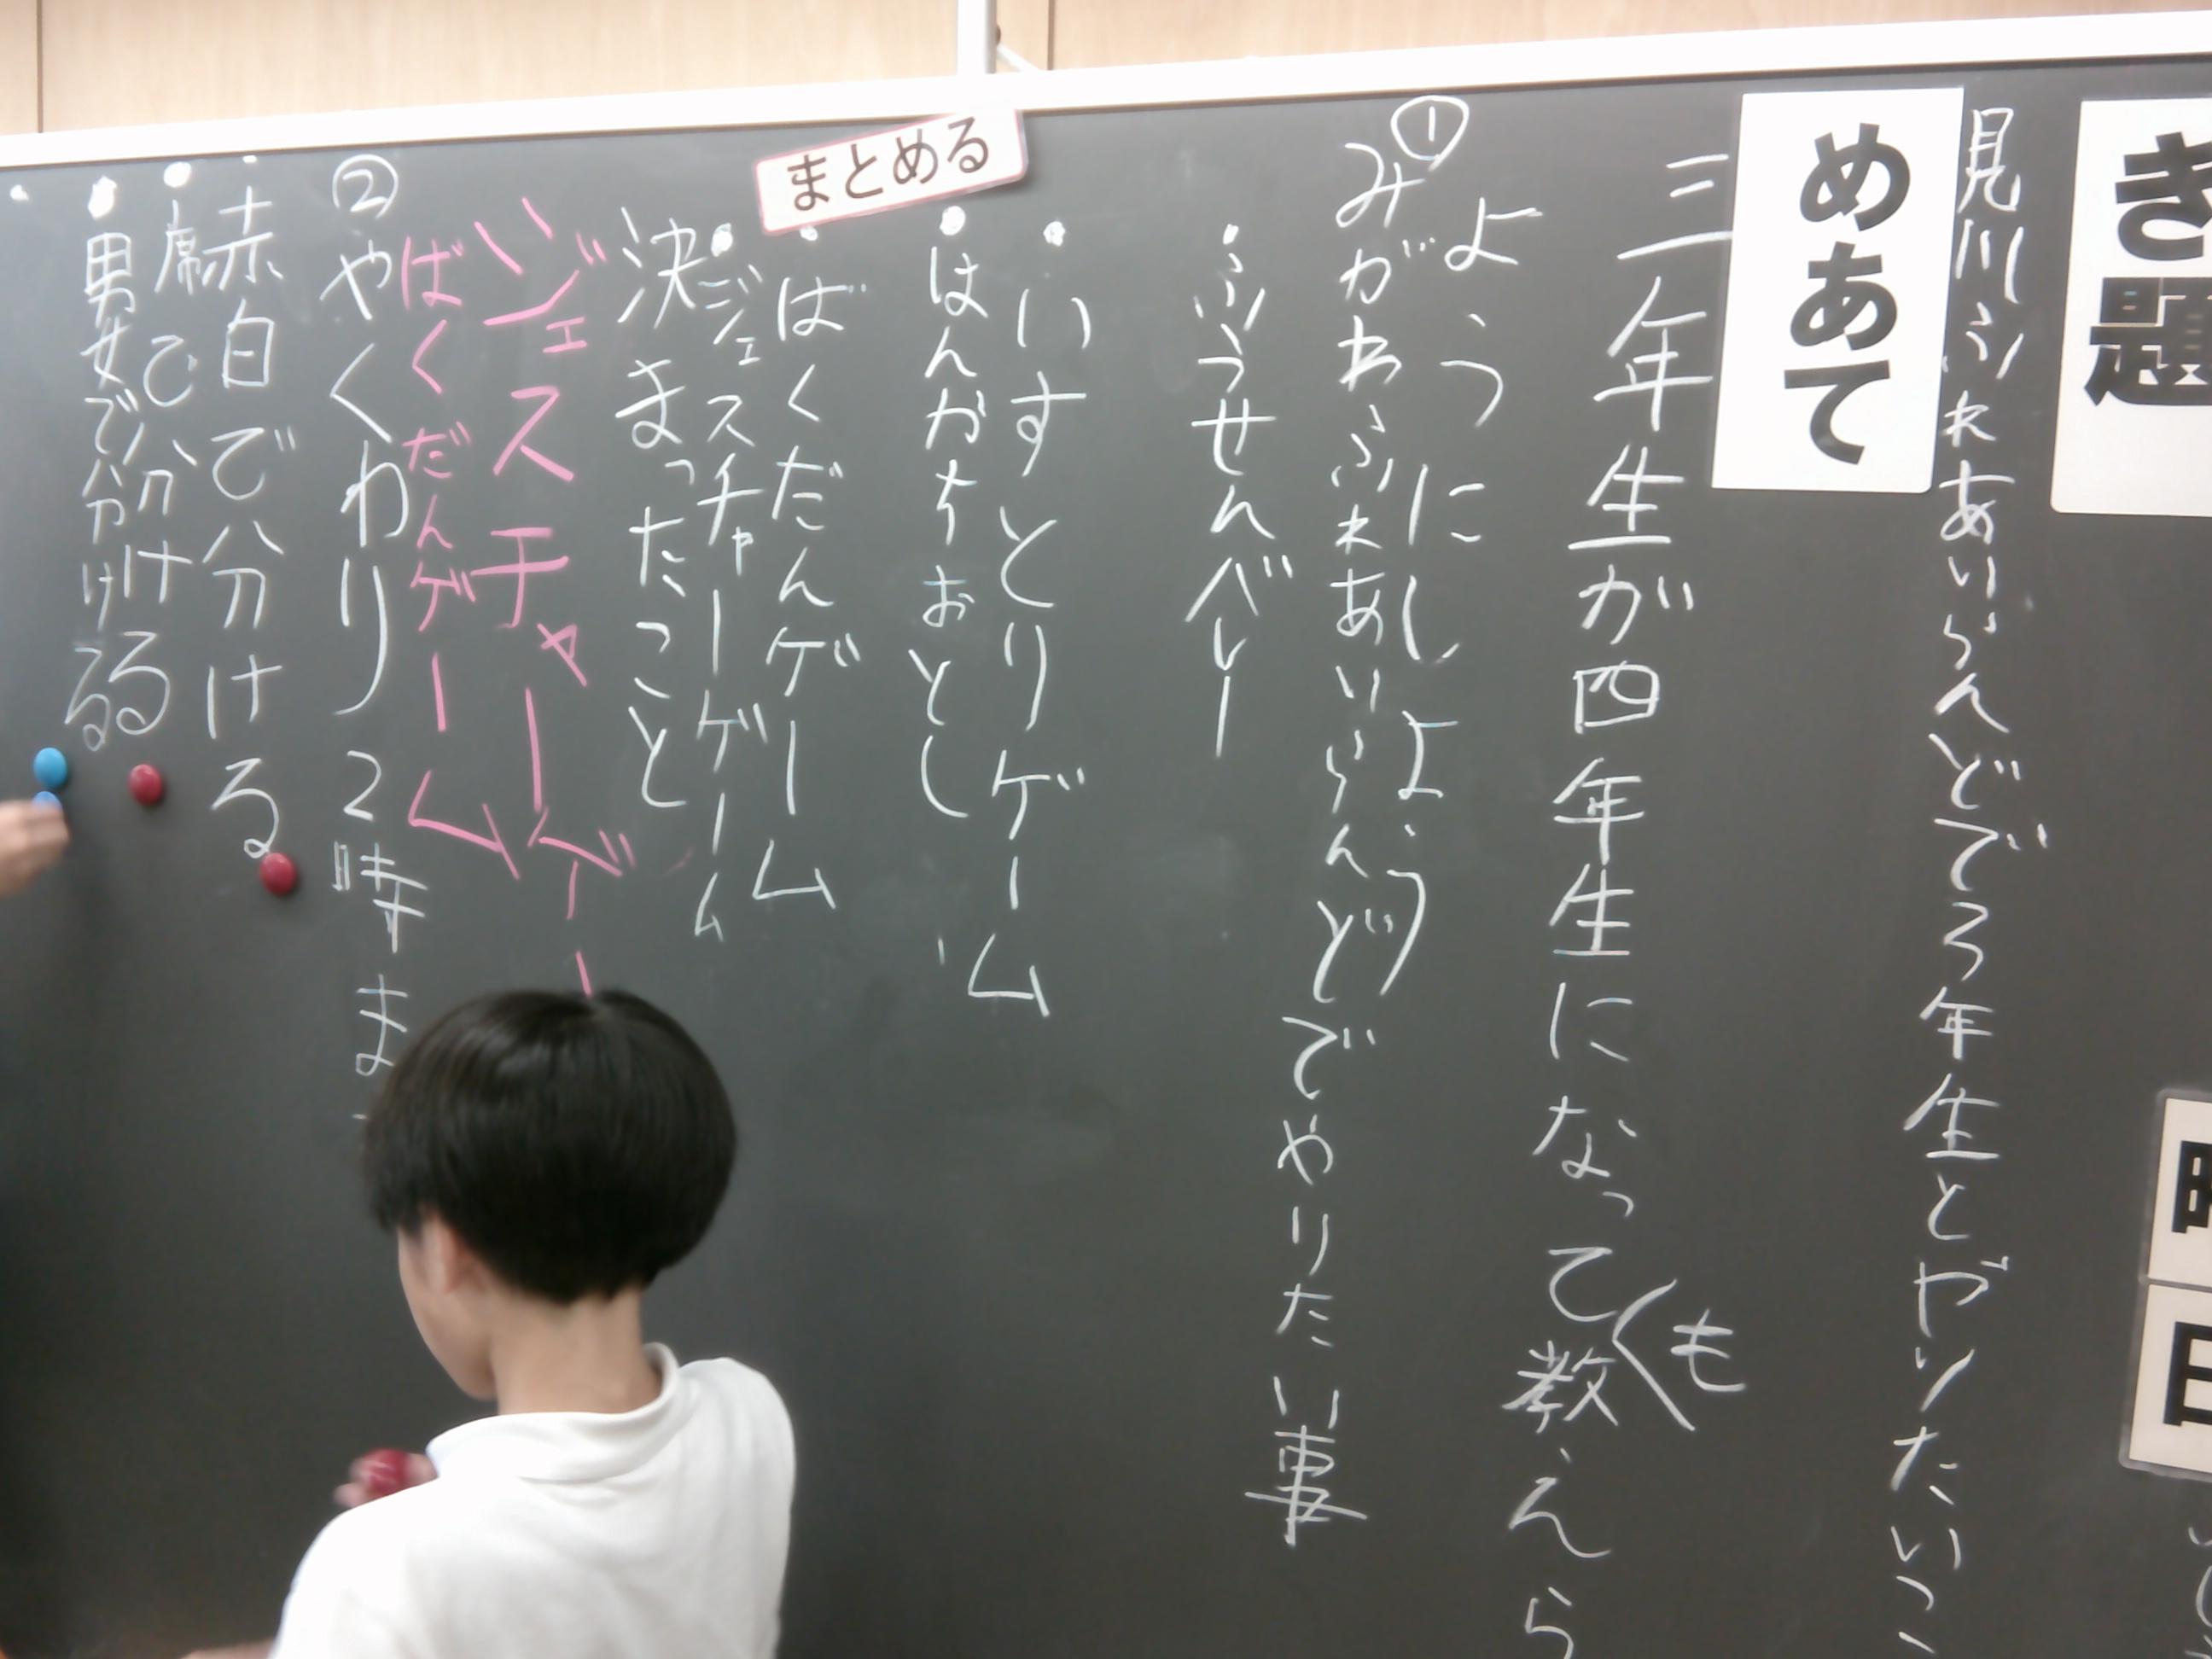 ぎ題
見川ふれあいらんどで3年生とやりたいこ
めあて
三年生が四年生になって教えら
も
ようにしよう
①
みがわふれあいらんどでやりたい事
・ふうせんバレー
・いすとりゲーム
・はんかちおとし
まとめる
・ばくだんゲーム
・ジェスチャーゲーム
決まったこと
ジェスチャーゲー
ばくだんゲーム
②やくわり 2時ま
・赤白で分ける
・席で分ける
・男女で分ける